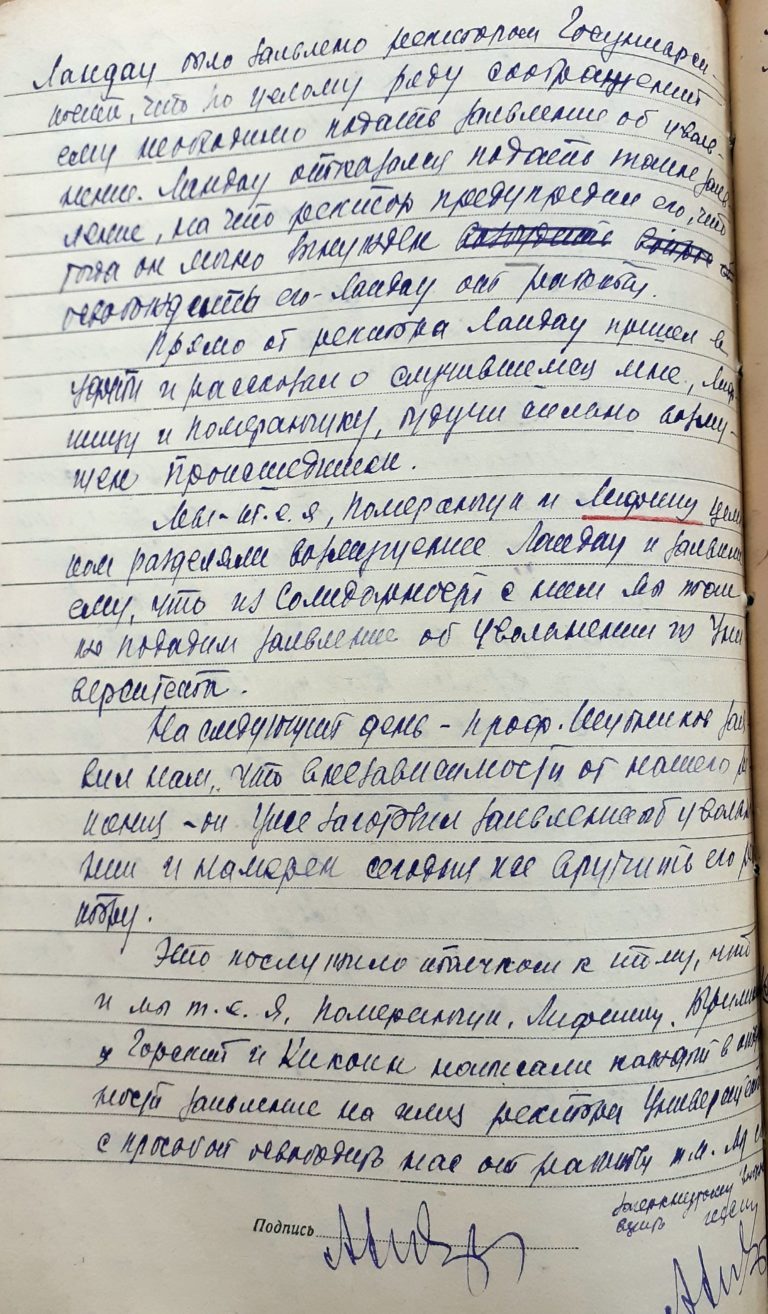 Ландау было заявлено ректором Госуниверси-
тета, что по целому ряду соображений
ему необходимо подать заявление об уволь-
нении. Ландау отказался подать такое заяв-
ление, на что ректор предупредил его, что
тогда он лично вынужден
освобождить его-Ландау от работы.
Прямо от ректора Ландау пришел в
УФТИ и рассказал о случившемся мне, Лиф-
шицу и Померанчуку, будучи сильно возму-
щен происшедшим.
Мы-т.е. я, Померанчук и Лифшиц цели
ком разделяли возмущение Ландау и заявили
ему, что из солидарности с ним мы так
же подадим заявление об увольнении из Уни
верситета.
На следующий день - проф. Шубников зая
вил нам, что вне зависимости от нашего ре
он уже заготовил заявление об увольне
нии и намерен сегодня же вручить его рек
тору.
Это послужило толчком к тому, что
и мы т.е. я, Померанчук, Лифшиц, Бриллиант
Горский и Кикоин написали каждый в отдель
ности заявление на имя ректора Университета
с просьбой освободить нас от работы т.к.
Подпись